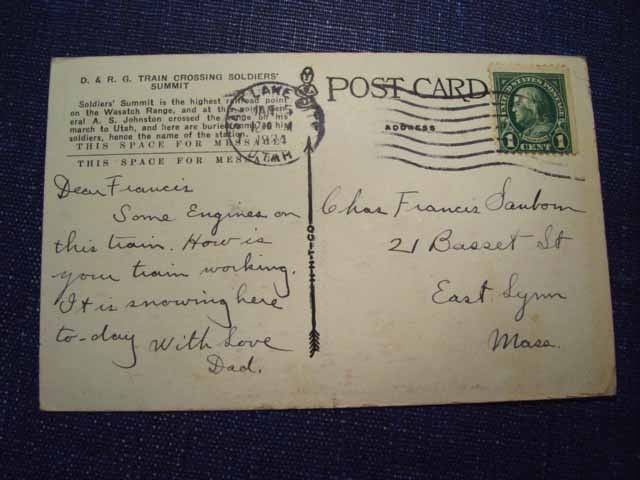 D. & R. G. TRAIN CROSSING SOLDIERS'
SUMMIT
Soldiers' Summit is the highest railroad point
on the Wasatch Range, and at this point Gen-
eral A. S. Johnston crossed the range on his
march to Utah, and here are buried some of his
soldiers, hence the name of the station.
THIS SPACE FOR MESSAGE
THIS SPACE FOR MESSAGE
Dear Francis
Some Engines on
this train. How is
your train working.
It is snowing here
to-day With Love
Dad.
LAKE
JAN 5
UTAH
POST CARD
ADDRESS
UNITED STATES POSTAGE
1 CENT 1
Chas Francis Sanborn
21 Basset St
East Lynn
Mass.